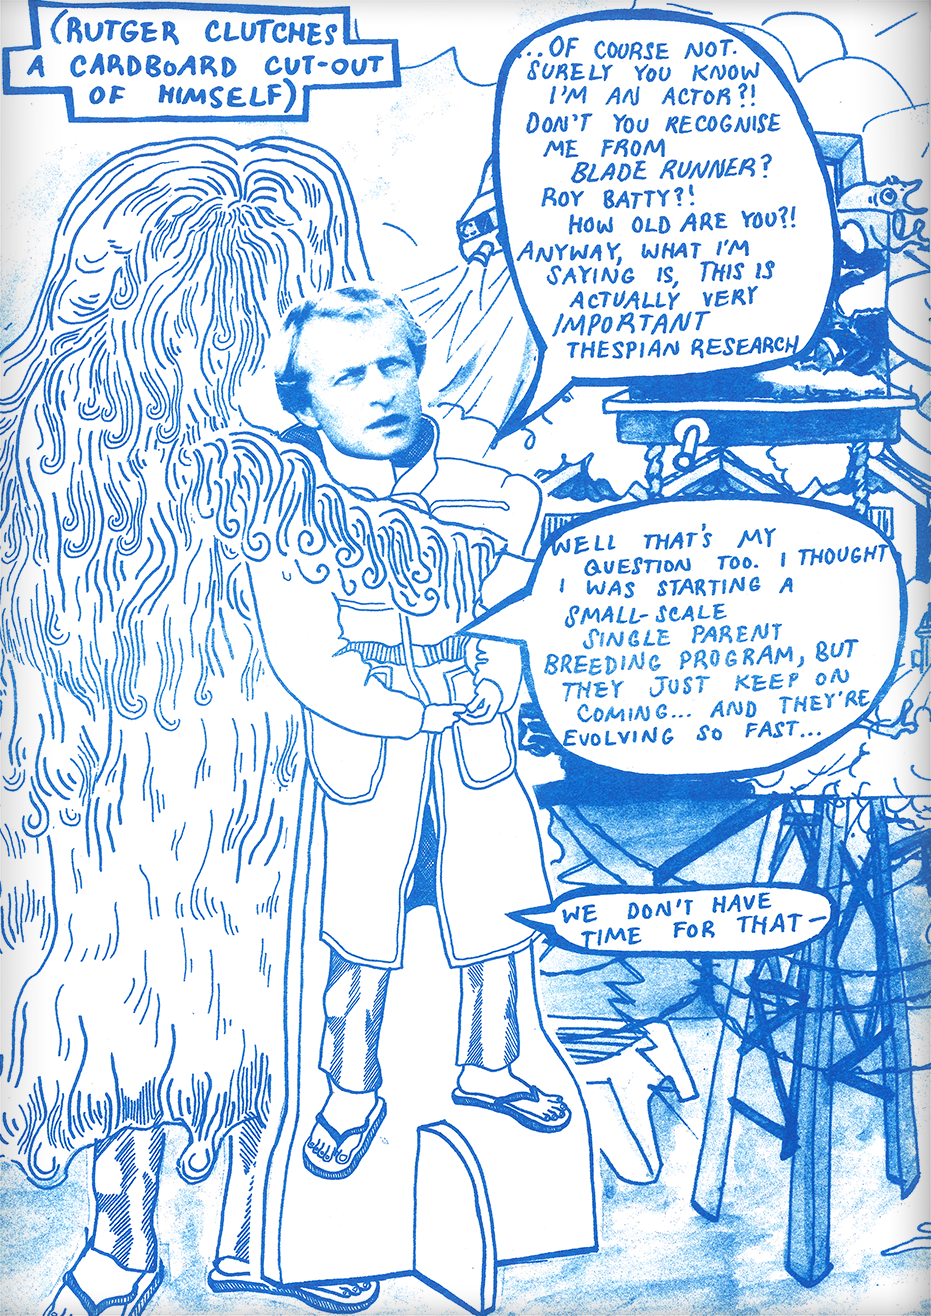 (RUTGER CLUTCHES
A CARDBOARD CUT-OUT
OF HIMSELF)
..OF COURSE NOT.
SURELY YOU KNOW
I'M AN ACTOR?!
DON'T YOU RECOGNISE
ME FROM
BLADE RUNNER?
ROY BATTY?!
HOW OLD ARE YOU?!
ANYWAY, WHAT I'M
SAYING IS, THIS IS
ACTUALLY VERY
IMPORTANT
THESPIAN RESEARCH
WELL THAT'S MY
QUESTION TOO. I THOUGHT
I WAS STARTING A
SMALL-SCALE
SINGLE PARENT
BREEDING PROGRAM, BUT
THEY JUST KEEP ON
COMING... AND THEY'RE
EVOLVING SO FAST...
WE DON'T HAVE
TIME FOR THAT-